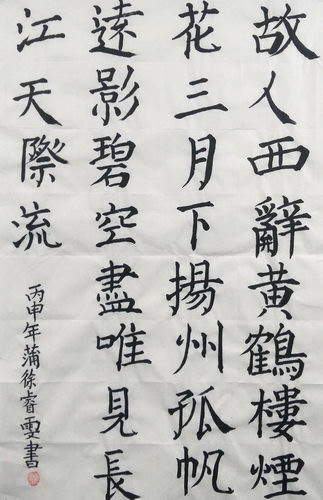 故人西辭黄鶴樓煙
花三月下揚州孤帆
遠影碧空盡唯見長
江天際流
丙申年蒲徐睿雯書